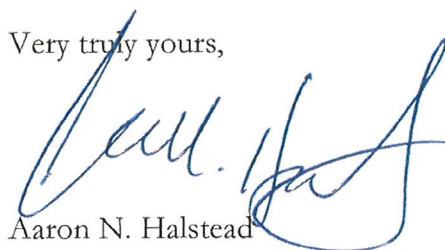 Very truly yours,
Aaron N. Halstead